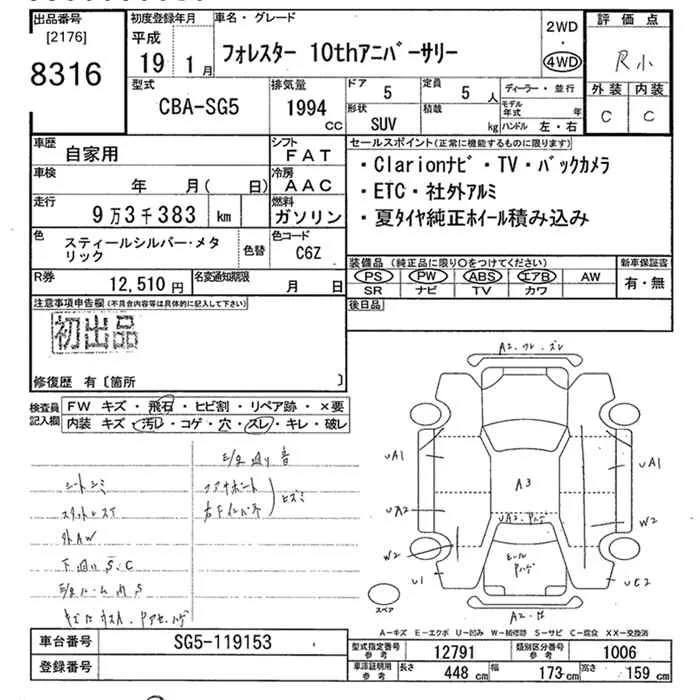 出品番号 初度登録年月 車名・グレード 2WD 評価点
[2176] 平成 フォレスター 10thアニバーサリー ・ R小
8316 19 1月 4WD 外装 内装
型式 排気量 ドア 定員 ディーラー・並行 C C
CBA-SG5 1994 CC 5 5 人 モデル年式 年
形状 積載
SUV kg ハンドル 左・右
車歴 自家用 シフト FAT セールスポイント(正常に機能するものに限ります)
車検 年 月( 日) 冷房 AAC ・Clarionナビ・TV・バックカメラ
・ETC・社外アルミ
走行 9万3千383 km 燃料 ガソリン ・夏タイヤ純正ホイール積み込み
色 スティールシルバー・メタリック 色替 色コード C6Z
装備品 (純正品に限り○をつけてください) 新車保証書
R券 12,510円 名変通知期限 月 日 PS PW ABS エアB AW 有・無
SR ナビ TV カワ
注意事項申告欄(不具合内容等は具体的に記入して下さい) 後日品
初出品
修復歴 有〔箇所 〕
検査員記入欄 FW キズ・飛石・ヒビ割・リペア跡・×要
内装 キズ・汚レ・コゲ・穴・スレ・キレ・破レ
シートシミ
外AW
下廻りS.C
ヒズミ
A2・ワレ・ズレ
UA1 UA1
A3
UA2
W2
W2
U1 UC2
スペア
A-キズ E-エクボ U-凹み W-補修跡 S-サビ C-腐食 XX-交換済
車台番号 SG5-119153 型式指定番号 参考 12791 類別区分番号 参考 1006
登録番号 車庫証明用 参考 長さ 448 cm 幅 173 cm 高さ 159 cm